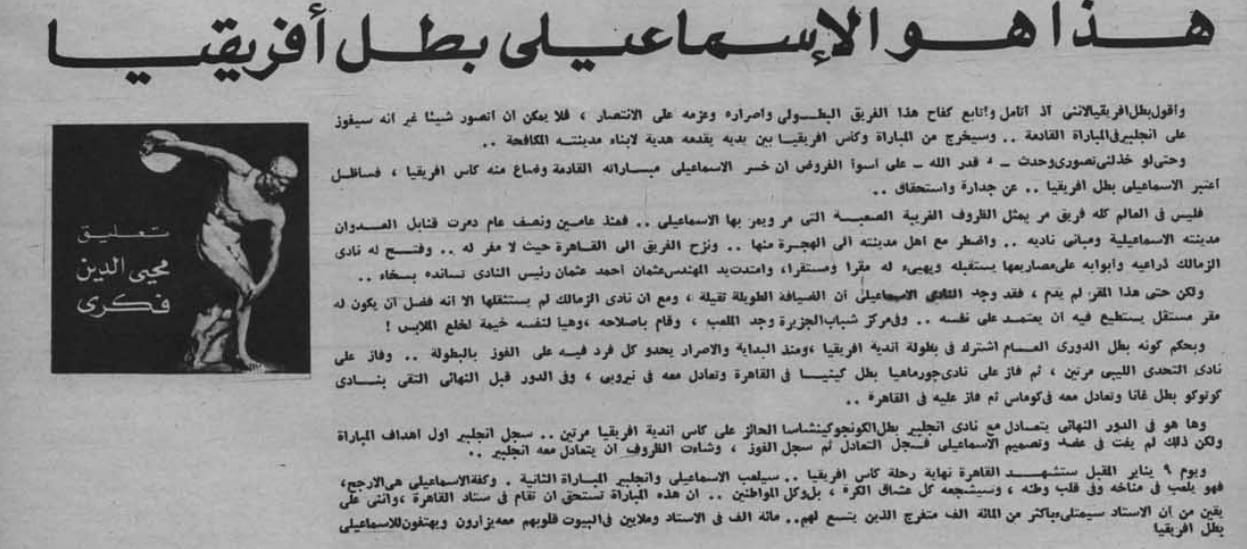 هذا هو الإسماعيلى بطل أفريقيا
تعليق
محيى الدين
فكرى
وأقول بطل افريقيا لاننى اذ اتامل واتابع كفاح هذا الفريق البطولى واصراره وعزمه على الانتصار ، فلا يمكن ان اتصور شيئا غير انه سيفوز
على انجلبير فى المباراة القادمة .. وسيخرج من المباراة وكأس افريقيا بين يديه يقدمه هدية لابناء مدينته المكافحة ..
وحتى لو خذلنى تصورى وحدث ــ قدر الله ــ على أسوأ الفروض ان خسر الاسماعيلى مباراته القادمة وضاع منه كأس افريقيا ، فسأظل
اعتبر الاسماعيلى بطل افريقيا .. عن جدارة واستحقاق ..
فليس فى العالم كله فريق مر بمثل الظروف الغريبة الصعبة التى مر ويمر بها الاسماعيلى .. فمنذ عامين ونصف عام دمرت قنابل العدوان
مدينته الاسماعيلية ومبانى ناديه .. واضطر مع اهل مدينته الى الهجرة منها .. ونزح الفريق الى القاهرة حيث لا مفر له .. وفتح له نادى
الزمالك ذراعيه وأبوابه على مصاريعها يستقبله ويهيىء له مقرا ومستقرا، وامتدت يد المهندس عثمان أحمد عثمان رئيس النادى تسانده بسخاء ..
ولكن حتى هذا المقر لم يدم ، فقد وجد النادى الاسماعيلى أن الضيافة الطويلة ثقيلة ، ومع ان نادى الزمالك لم يستثقلها الا انه فضل أن يكون له
مقر مستقل يستطيع فيه ان يعتمد على نفسه .. وفى مركز شباب الجزيرة وجد الملعب ، وقام باصلاحه ، وهيأ لنفسه خيمة لخلع الملابس !
وبحكم كونه بطل الدورى العام اشترك فى بطولة أندية افريقيا ، ومنذ البداية والاصرار يحدو كل فرد فيه على الفوز بالبطولة .. وفاز على
نادى التحدى الليبى مرتين ، ثم فاز على نادى جورماهيا بطل كينيا فى القاهرة وتعادل معه فى نيروبى ، وفى الدور قبل النهائى التقى بنادى
كوتوكو بطل غانا وتعادل معه فى كوماس ثم فاز عليه فى القاهرة ..
وها هو فى الدور النهائى يتعادل مع نادى انجلبير بطل الكونجو كينشاسا الحائز على كأس اندية افريقيا مرتين .. سجل انجلبير اول اهداف المباراة
ولكن ذلك لم يفت فى عضد وتصميم الاسماعيلى فسجل التعادل ثم سجل الفوز ، وشاءت الظروف ان يتعادل معه انجلبير ..
ويوم ٩ يناير المقبل ستشهد القاهرة نهاية رحلة كأس افريقيا .. سيلعب الاسماعيلى وانجلبير المباراة الثانية . وكفة الاسماعيلى هى الارجح،
فهو يلعب فى مناخه وفى قلب وطنه ، وسيشجعه كل عشاق الكرة ، بل وكل المواطنين .. ان هذه المباراة تستحق ان تقام فى ستاد القاهرة ، واننى على
يقين من ان الاستاد سيمتلىء باكثر من المائة الف متفرج الذين يتسع لهم.. مائة الف فى الاستاد وملايين فى البيوت قلوبهم معه يزارون ويهتفون للاسماعيلى
بطل افريقيا